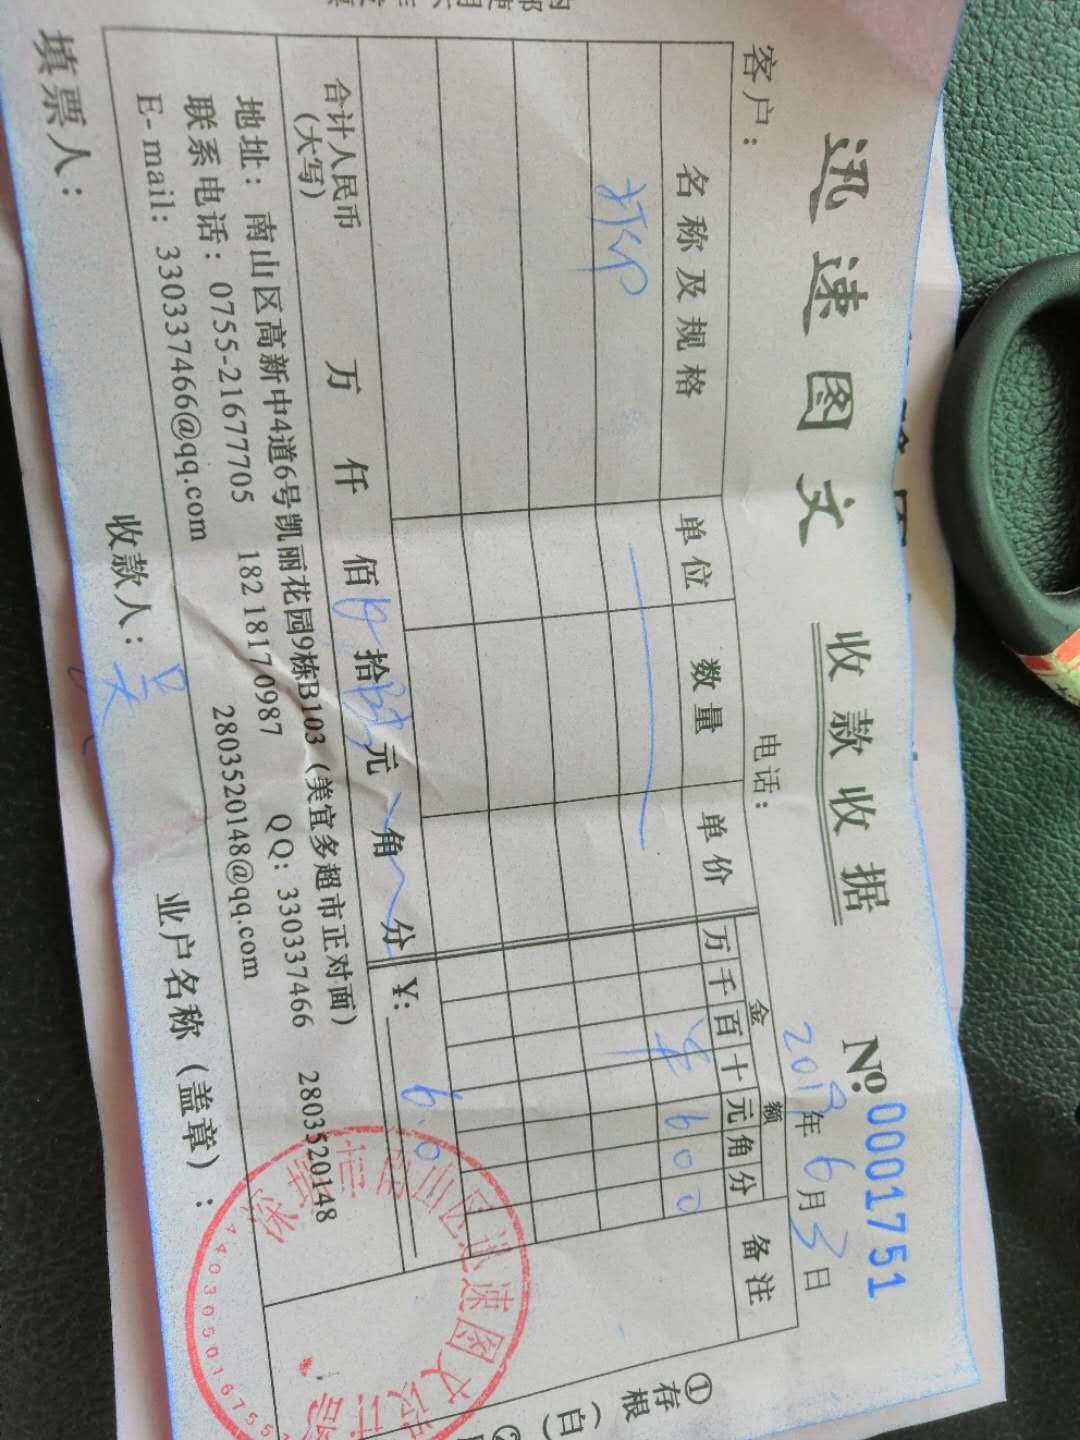 迅速图文 收款收据
№ 0001751
客户：
电话：
2019年6月3日
名称及规格 单位 数量 单价 金额 备注
万 千 百 十 元 角 分
打印
¥ 6 0 0
合计人民币（大写） 万 仟 佰 拾 元 角 分 ¥: 6.0
地址：南山区高新中4道6号凯丽花园9栋B103（美宜多超市正对面）
联系电话：0755-21677705 18218170987 QQ：330337466 280352
0148
E-mail：330337466@qq.com 2803520148@qq.com
填票人：
收款人：吴
业户名称（盖章）：
山区迅速图文设计部
4403050167551
①存根（白）
②